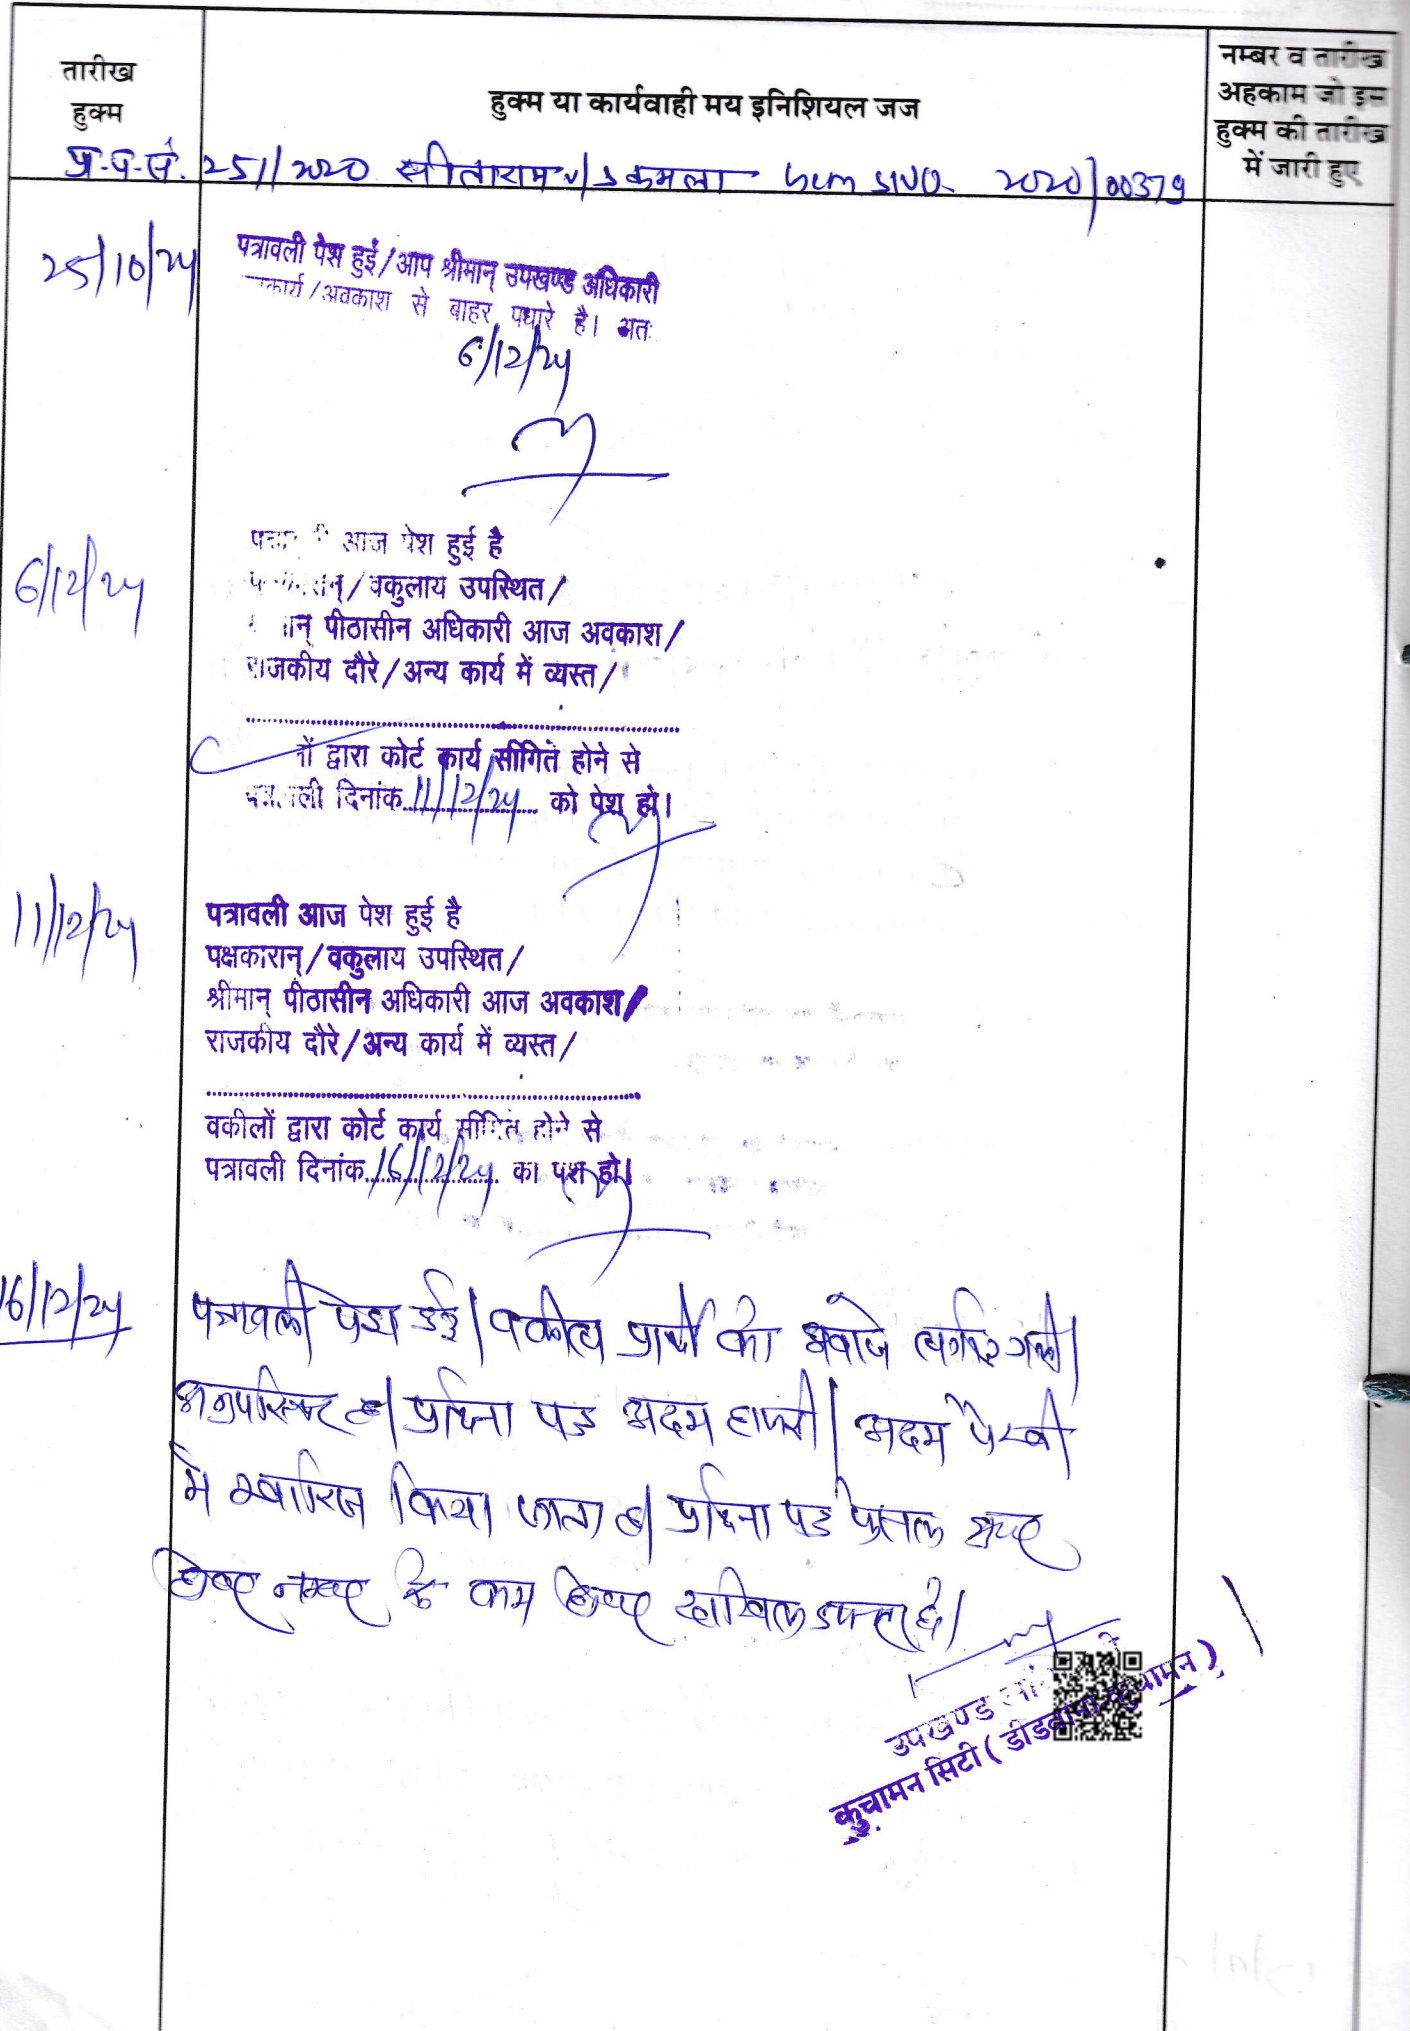 तारीख
हुक्म
हुक्म या कार्यवाही मय इनिशियल जज
नम्बर व तारीख
अहकाम जो इस
हुक्म की तारीख
में जारी हुए
प्र.प.सं. 251/2020 सीताराम v/s कमला 2020/00379
25/10/24
पत्रावली पेश हुई/आप श्रीमान् उपखण्ड अधिकारी
कार्य/अवकाश से बाहर पधारे है। अतः
6/12/24
6/12/24
आज पेश हुई है
वकुलाय उपस्थित/
पीठासीन अधिकारी आज अवकाश/
राजकीय दौरे/अन्य कार्य में व्यस्त/
द्वारा कोर्ट कार्य होने से
दिनांक 11/12/24 को पेश हो।
11/12/24
पत्रावली आज पेश हुई है
पक्षकारान्/वकुलाय उपस्थित/
श्रीमान् पीठासीन अधिकारी आज अवकाश/
राजकीय दौरे/अन्य कार्य में व्यस्त/
वकीलों द्वारा कोर्ट कार्य होने से
पत्रावली दिनांक 16/12/24 को पेश हो।
16/12/24
पत्रावली पेश हुई। वकील प्रार्थी की आवाजे लगाई गयी।
अनुपस्थित है। प्रार्थना पत्र अदम हाजरी/अदम पैरवी
मे खारिज किया जाता है। प्रार्थना पत्र फैसल शुमार
होकर नम्बर से कम होकर दाखिल दफ्तर हो।
उपखण्ड
कुचामन सिटी (डीडवाना-कुचामन)